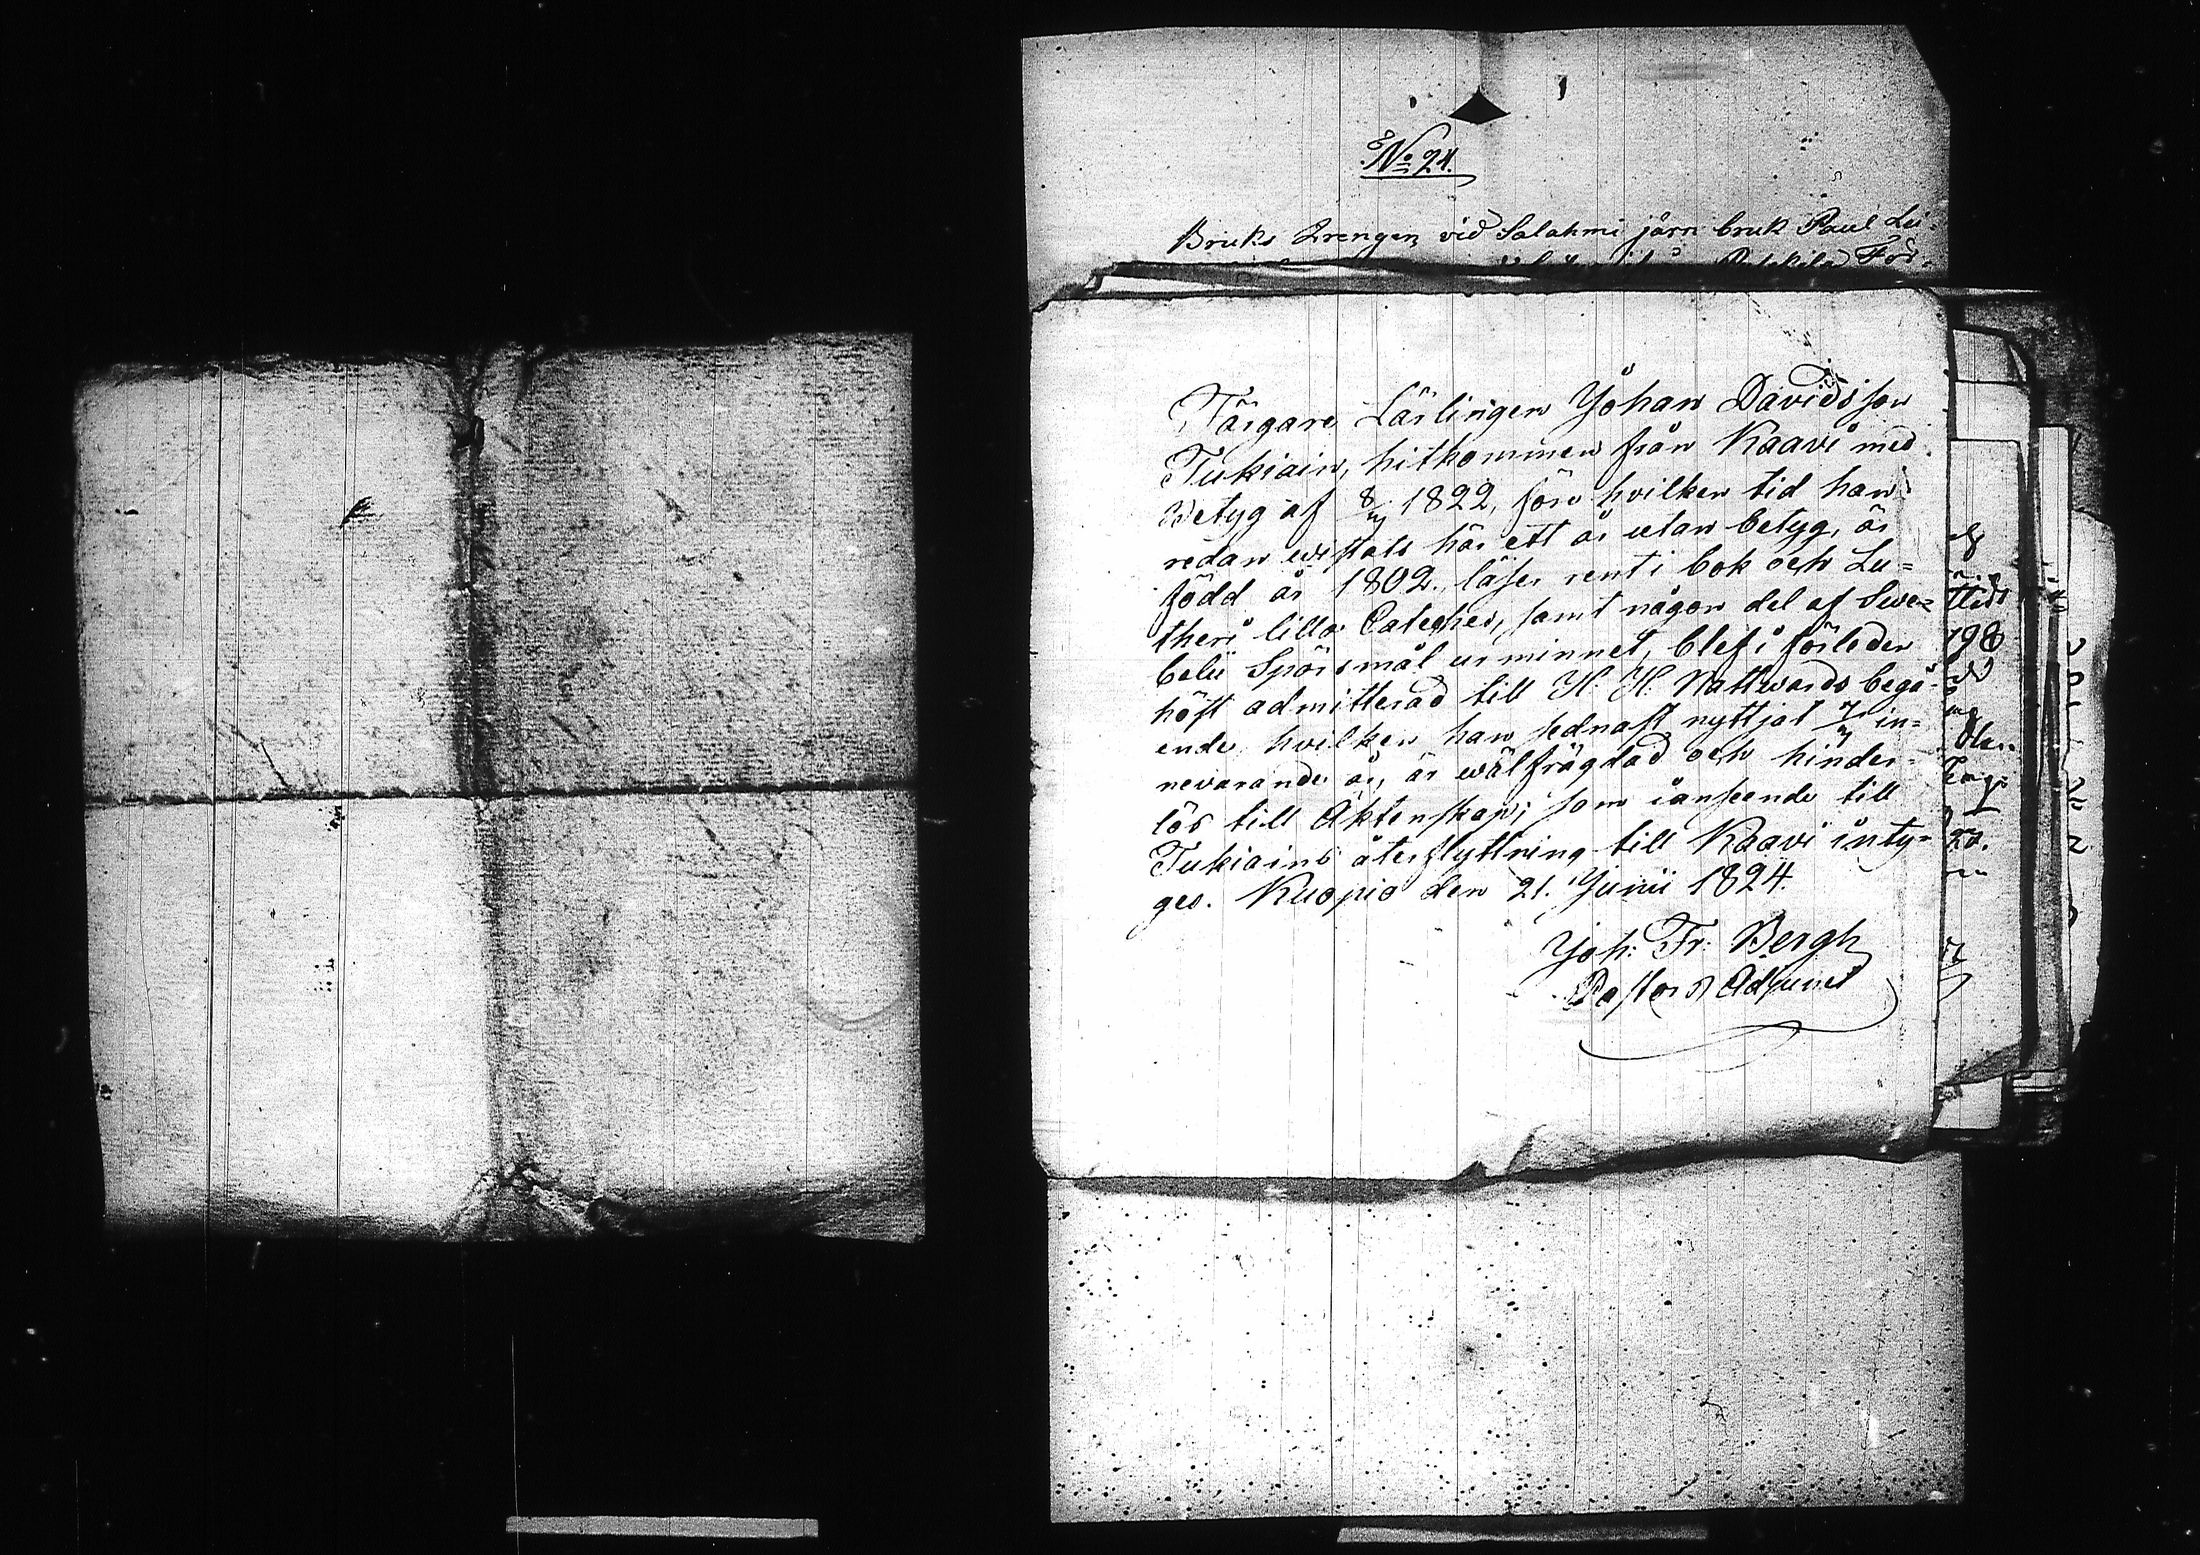 No 24.
Bruks Drengen vid Salahmi järn bruk Paul Lu-
För-
Färgare Lärlingen Johan Davidsson
Tukiain, hitkommen från Kaavi med
Betyg af 1822, före hvilken tid han
redan wistats här ett år utan betyg, är
född år 1802. läser rent i bok och Lu=
theri lilla Cateches, samt någon del af Swe=
belii Spörsmål ur minnet, blef i förleden
höst admitterad till H. H. Nattwards begå-
ende hvilken han sednast nyttjat in=
nevarande år, är wälfrägdad och hinder-
lös till Äktenskap; som i anseende till
Tukiains återflyttning till Kaavi inty=
ges. Kuopio den 21. Junii 1824.
Joh: Fr: Bergh
Pastors Adjunct